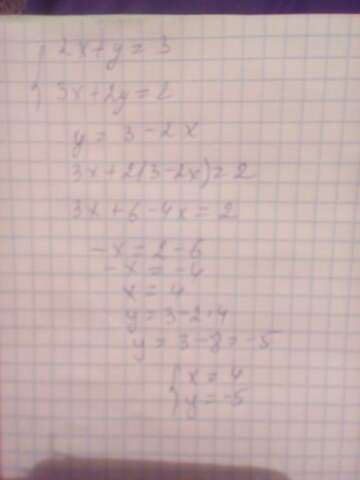 { 2x + y = 3
3x + 2y = 2
y = 3 - 2x
3x + 2(3 - 2x) = 2
3x + 6 - 4x = 2
-x = 2 - 6
-x = -4
x = 4
y = 3 - 2·4
y = 3 - 8 = -5
{ x = 4
y = -5